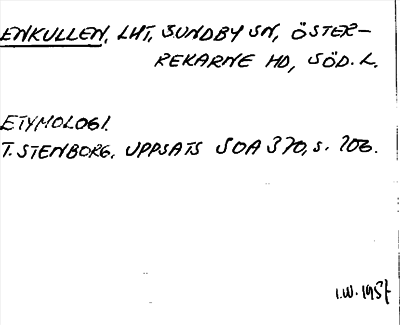 ENKULLEN, LHT, SUNDBY SN, ÖSTER-
REKARNE HD, SÖD. L.
ETYMOLOGI.
T. STENBORG, UPPSATS SOA 370, S. 206.
I.W. 1957